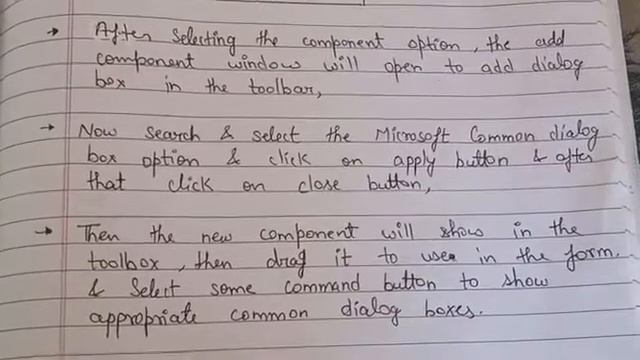 → After selecting the component option, the add
component window will open to add dialog
box in the toolbar,
→ Now search & select the Microsoft Common dialog
box option & click on apply button & after
that click on close button,
→ Then the new component will show in the
toolbox, then drag it to use in the form.
& Select some command button to show
appropriate common dialog boxes.